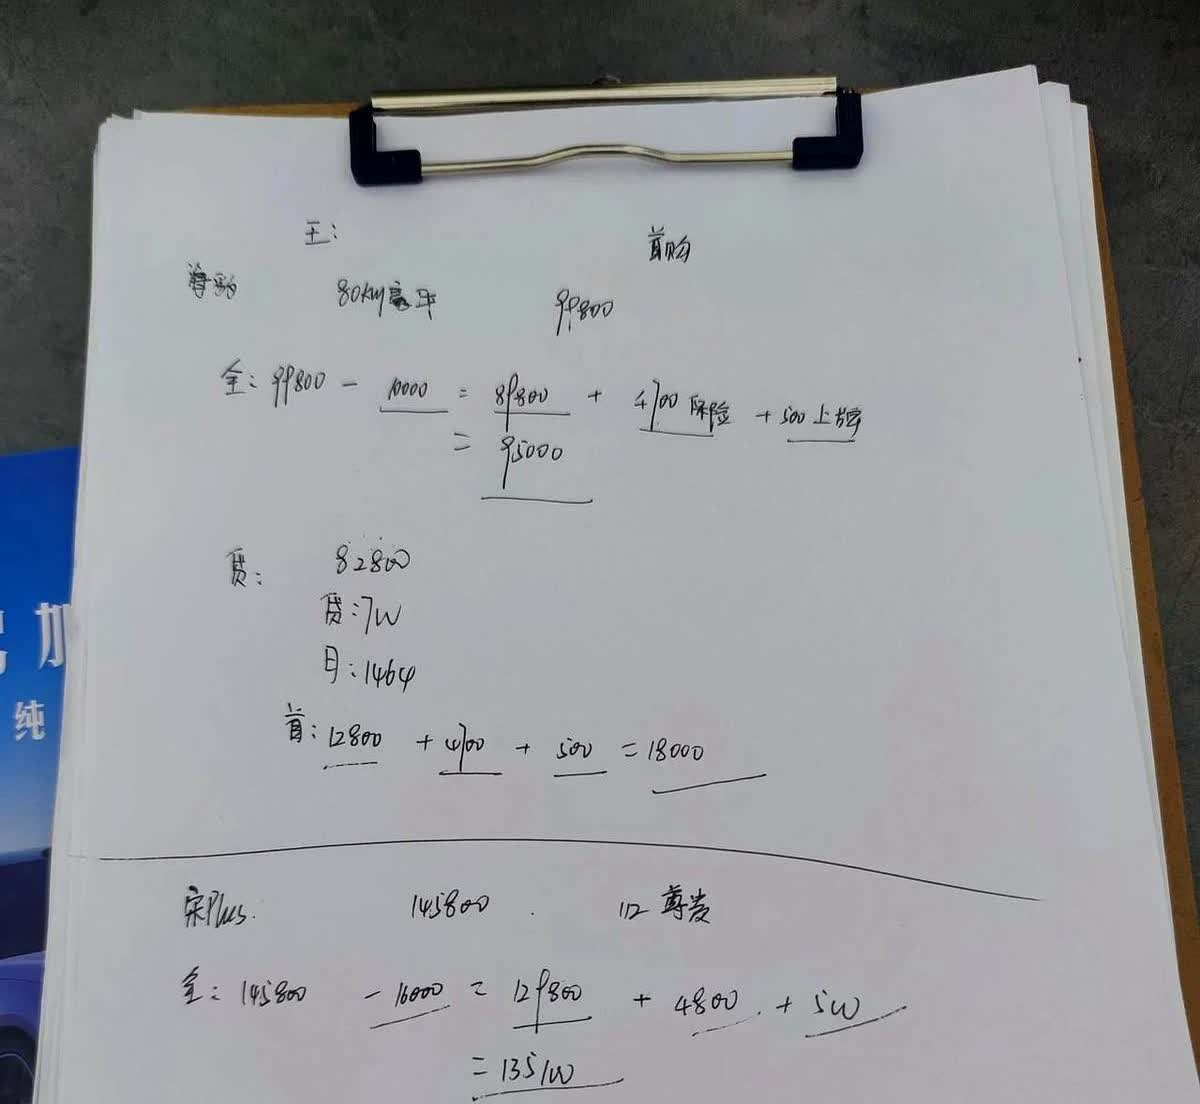 王: 首购
海豹 80KM豪华 99800
全: 99800 - 10000 = 89800 + 4700 保险 + 500 上牌
= 95000
贷: 82800
贷: 7W
月: 1464
首: 12800 + 4700 + 500 = 18000
加
纯
宋Plus. 145800 . 112 尊贵
全: 145800 - 16000 = 129800 + 4800 + 500
= 135100